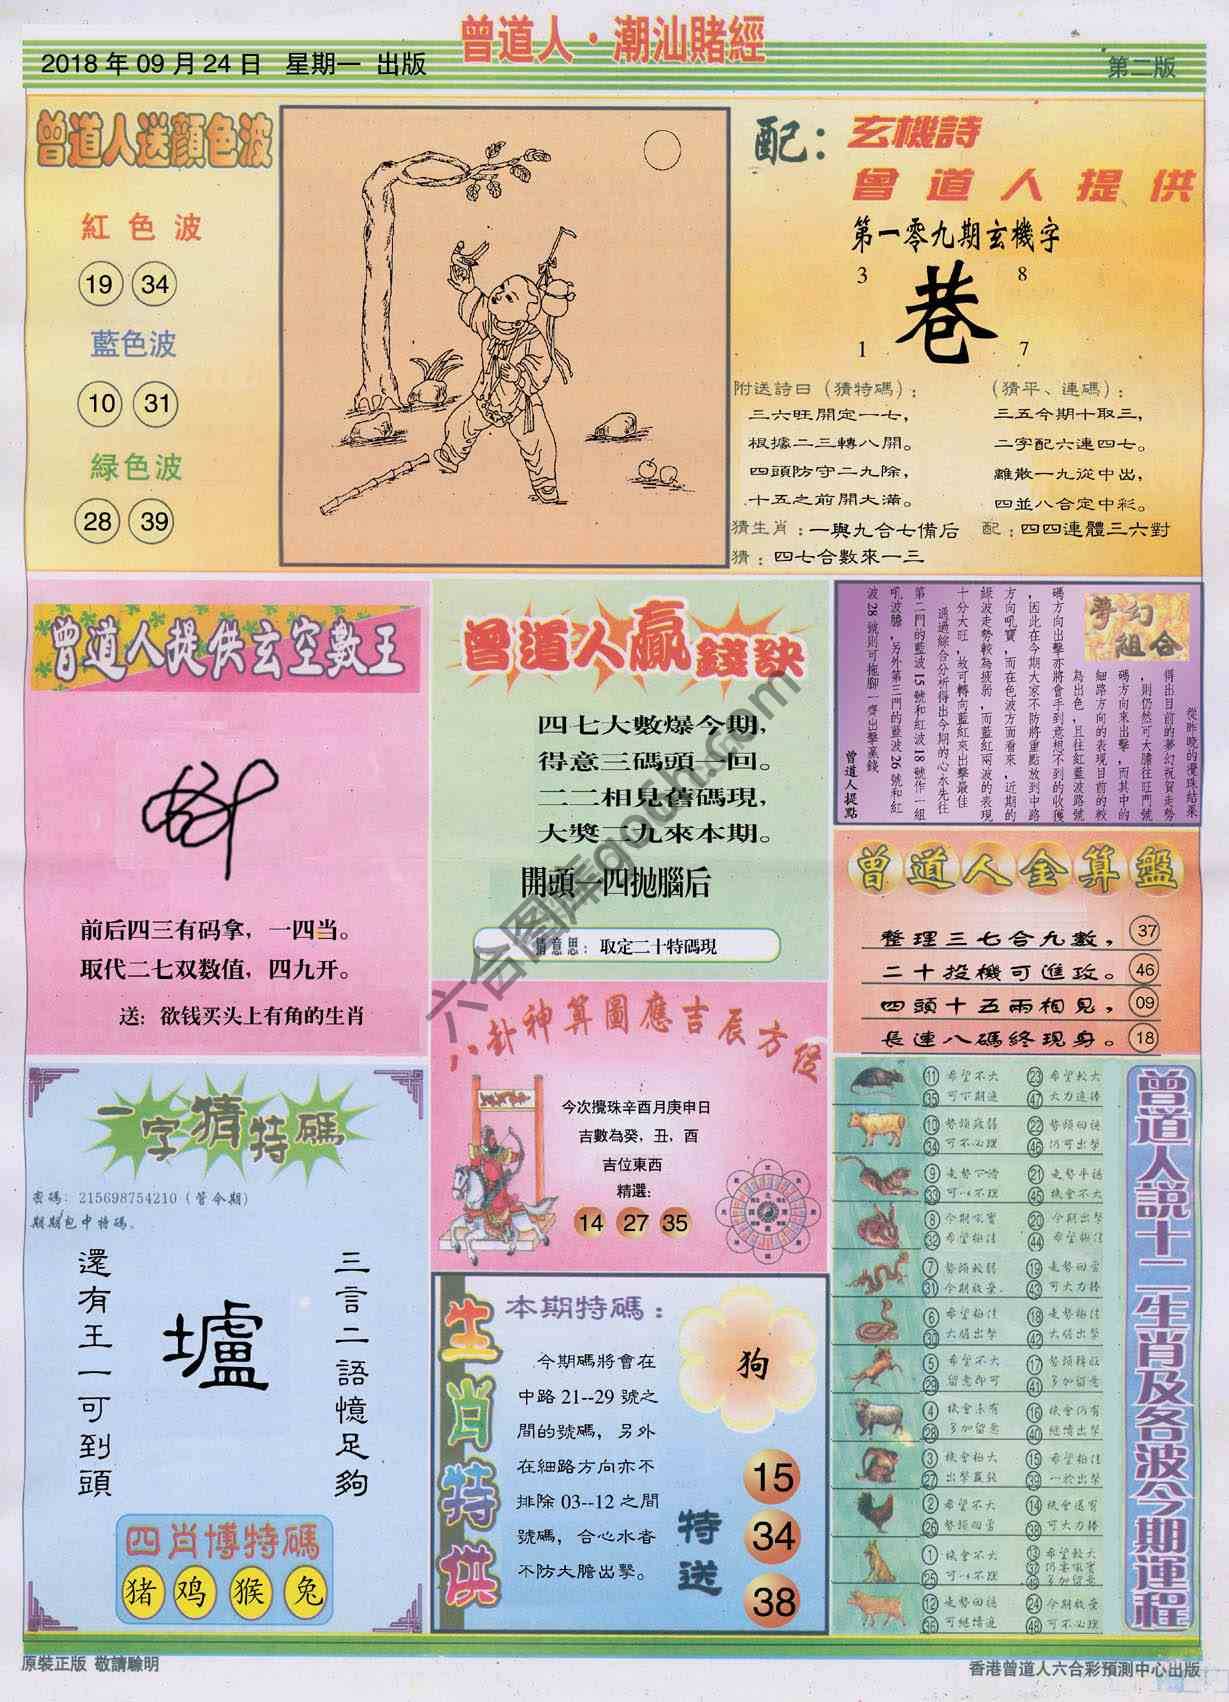 曾道人·潮汕賭經
2018年09月24日 星期一 出版
第二版
曾道人送顏色波
紅色波
19 34
藍色波
10 31
緑色波
28 39
配：玄機詩
曾道人提供
第一零九期玄機字
3 8
巷
1 7
附送詩曰（猜特碼）：
三六旺開定一七，
根據二三轉八開。
四頭防守二九除，
十五之前開大滿。
（猜平、連碼）：
三五今期十取三，
二字配六連四七。
離散一九從中出，
四並八合定中彩。
猜生肖：一與九合七備后
配：四四連體三六對
猜：四七合數來一三
曾道人提供玄空數王
前后四三有码拿，一四当。
取代二七双数值，四九开。
送：欲钱买头上有角的生肖
曾道人贏錢訣
四七大數爆今期，
得意三碼頭一回。
二二相見舊碼現，
大獎二九來本期。
開頭一四拋腦后
猜意思：取定二十特碼現
夢幻組合
從昨晚的攪珠結果
得出目前的夢幻祝賀走勢
，則仍然可大膽往旺門號
碼方向來出擊，而其中的
細路方向的表現目前的較
為出色，且往紅藍波路號
碼方向出擊亦將會手到意想不到的收獲
，因此在今期大家不防將重點放到中路
方向吼寶，而在色波方面看來，近期的
緑波走勢較為疲弱，而藍紅兩波的表現
十分大旺，故可轉向藍紅來出擊最佳
通過綜合分析得出今期的心水先往
第二門的藍波15號和紅波18號作一組
吼波膽，另外第三門的藍波26號和紅
波28號則可拖腳一齊出擊贏錢
曾道人提點
曾道人金算盤
整理三七合九數， 37
二十投機可進攻。 46
四頭十五兩相見， 09
長連八碼終現身。 18
八卦神算圖應吉辰方位
今次攪珠辛酉月庚申日
吉數為癸，丑，酉
吉位東西
精選：
14 27 35
一字猜特碼
密碼：215698754210（管今期）
期期包中特碼。
三言二語憶足夠
壚
還有王一可到頭
四肖博特碼
猪 鸡 猴 兔
生肖特供
本期特碼：
今期碼將會在
中路21--29號之
間的號碼，另外
在細路方向亦不
排除03--12之間
號碼，合心水者
不防大膽出擊。
狗
特送
15
34
38
曾道人説十二生肖及各波今期運程
11 希望不大 23 希望較大
35 可下期進 47 大力進捧
10 勢頭疲弱 22 勢頭回穩
34 可不必理 46 仍可出擊
9 走勢下滑 21 走勢平穩
33 可一不理 45 機會不大
8 今期吼寶 20 今期出擊
32 希望極佳 44 希望極佳
7 勢頭較弱 19 走勢回勇
31 今期放棄 43 可大力捧
6 希望極佳 18 走勢極佳
30 大膽出擊 42 大膽出擊
5 希望不大 17 勢頭轉旺
29 留意即可 41 多加留意
4 機會未有 16 機會仍有
28 多加留意 40 繼續出擊
3 機會極大 15 希望極佳
27 出擊贏錢 39 一於出擊
2 希望不大 14 機會還有
26 勢頭回勇 38 可大力捧
1 機會不大 13 希望較大
25 可一不理 37 仍要吼實
49 多加留意
12 走勢回穩 24 今期放棄
36 可繼續進 48 可不必理
原裝正版 敬請驗明
香港曾道人六合彩預測中心出版
六合图库gooh.com